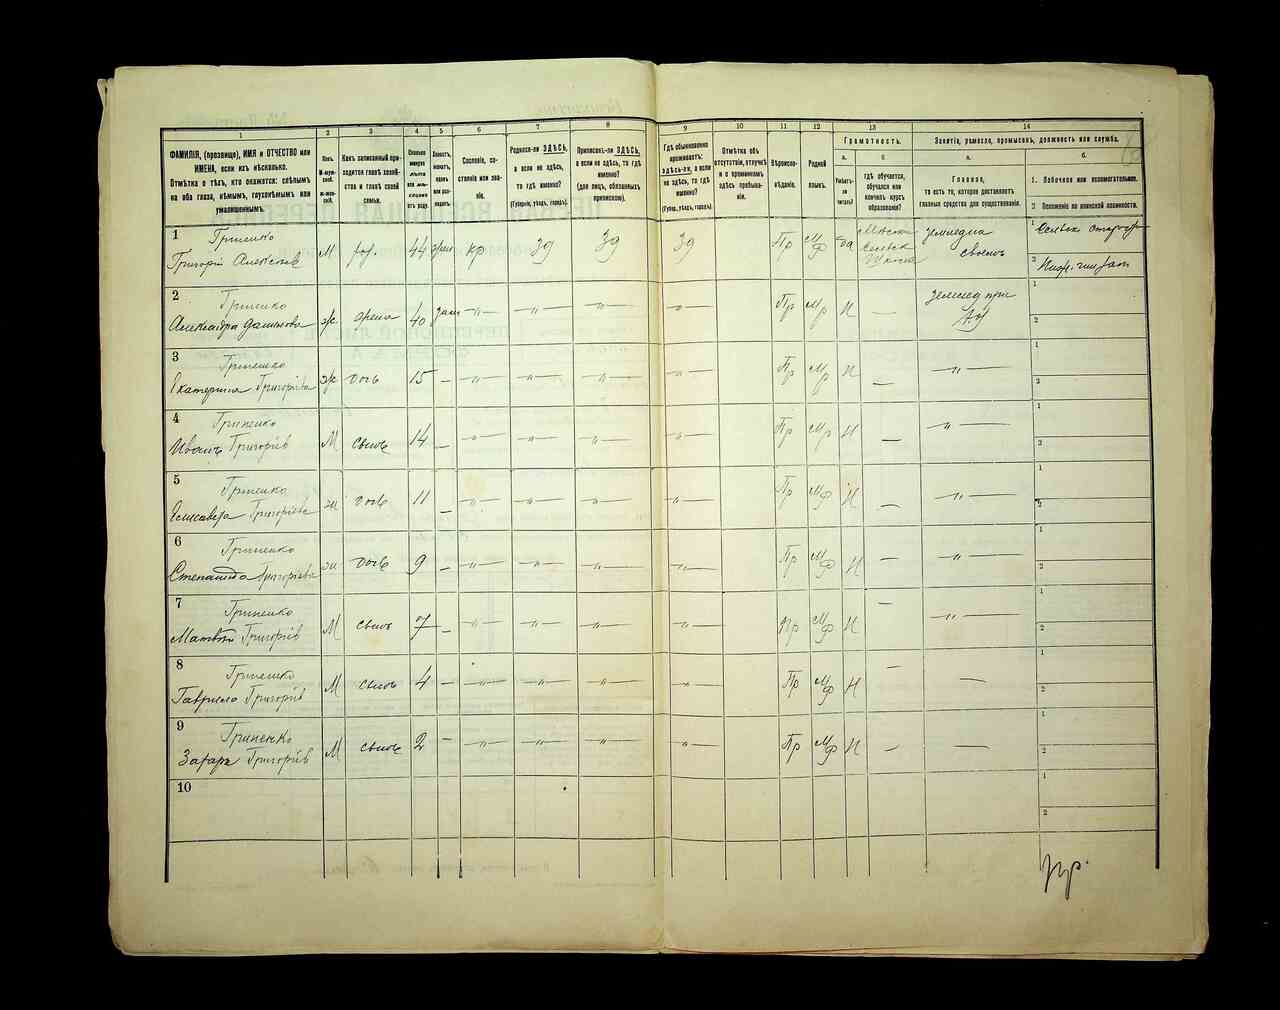 1 2 3 4 5 6 7 8 9 10 11 12 13 14
ФАМИЛІЯ, (прозвище), ИМЯ и ОТЧЕСТВО или
ИМЕНА, если ихъ нѣсколько.
Отмѣтка о тѣхъ, кто окажется: слѣпымъ
на оба глаза, нѣмымъ, глухонѣмымъ или
умалишеннымъ.
Полъ.
М-муж-
ской.
Ж-жен-
скій.
Какъ записанный при-
ходится главѣ хозяй-
ства и главѣ своей
семьи.
Сколько
минуло
лѣтъ
или мѣ-
сяцевъ
отъ роду.
Холостъ,
женатъ,
вдовъ
или раз-
веденъ.
Сословіе, со-
стояніе или зва-
ніе.
Родился-ли ЗДѢСЬ,
а если не здѣсь,
то гдѣ
именно?
(Губернія, уѣздъ, городъ).
Приписанъ-ли ЗДѢСЬ,
а если не здѣсь, то гдѣ
именно?
(для лицъ, обязанныхъ
припискою).
Гдѣ обыкновенно
проживаетъ:
здѣсь-ли, а если
не здѣсь, то гдѣ
именно?
(Губер., уѣздъ, городъ).
Отмѣтка объ
отсутствіи, отлучкѣ
и о временномъ
здѣсь пребыва-
ніи.
Вѣроиспо-
вѣданіе.
Родной
языкъ.
Грамотность.
а. б.
Умѣетъ-ли
читать?
гдѣ обучается,
обучался или
кончилъ курсъ
образованія?
Занятіе, ремесло, промыселъ, должность или служба.
а. б.
Главное,
то есть то, которое доставляетъ
главныя средства для существованія.
1. Побочное или вспомогательное.
2 Положеніе по воинской повинности.
1 Гриненко
Григорій М хоз. 44 жен кр зд зд зд Пр да своемъ
1
2
2 Гриненко
Александра ж жена 40 зам — " — — " — — " — — " — Пр Мр Н —
1
2
3 Гриненко
Екатерина Григорiева ж дочь 15 — — " — — " — — " — — " — Пр Мр Н — — " —
1
2
4 Гриненко
Иванъ Григорiевъ М сынъ 14 — — " — — " — — " — — " — Пр Мр Н — — " —
1
2
5 Гриненко
Елисавета Григорiева ж дочь 11 — — " — — " — — " — — " — Пр Н — — " —
1
2
6 Гриненко
Степанида Григорiева ж дочь 9 — — " — — " — — " — — " — Пр Н — — " —
1
2
7 Гриненко
Матвѣй Григорiевъ М сынъ 7 — — " — — " — — " — — " — Пр Н — — " —
1
2
8 Гриненко
Гаврило Григорiевъ М сынъ 4 — — " — — " — — " — — " — Пр Н — —
1
2
9 Гриненко
Захаръ Григорiевъ М сынъ 2 — — " — — " — — " — — " — Пр Н — —
1
2
10
1
2